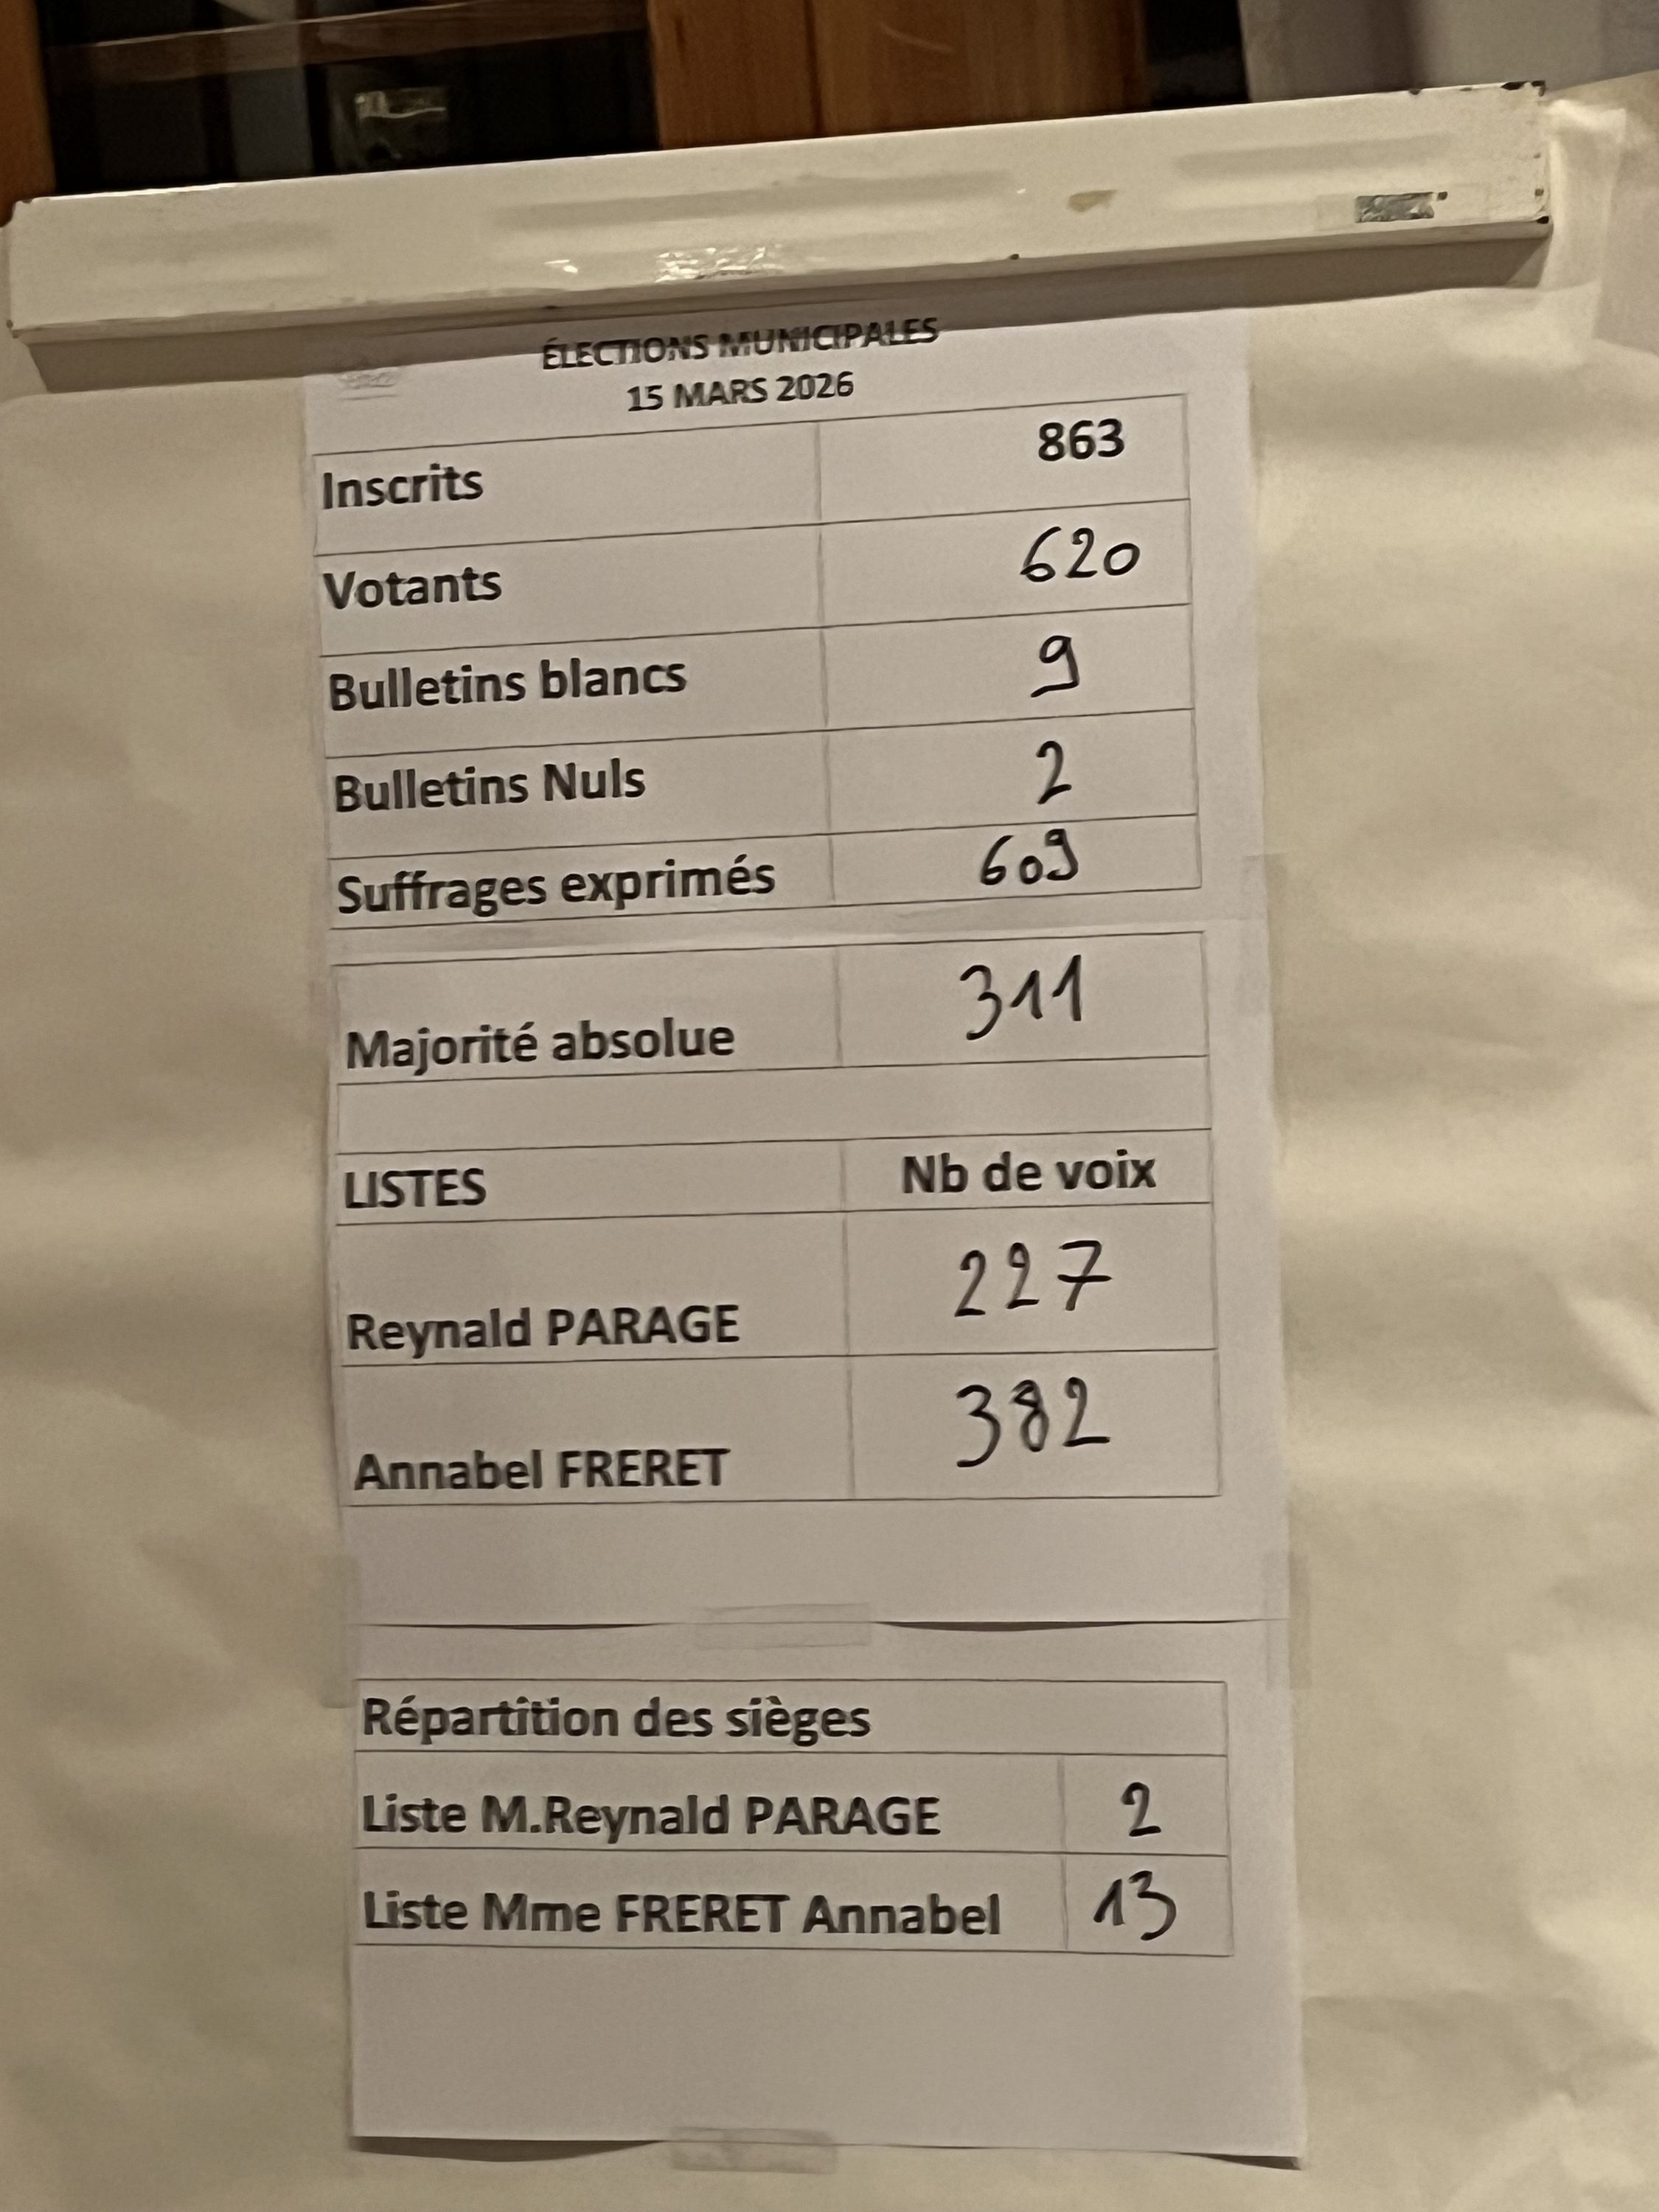 ÉLECTIONS MUNICIPALES
15 MARS 2026
Inscrits 863
Votants 620
Bulletins blancs 9
Bulletins Nuls 2
Suffrages exprimés 609
Majorité absolue 311
LISTES Nb de voix
Reynald PARAGE 227
Annabel FRERET 382
Répartition des sièges
Liste M.Reynald PARAGE 2
Liste Mme FRERET Annabel 13